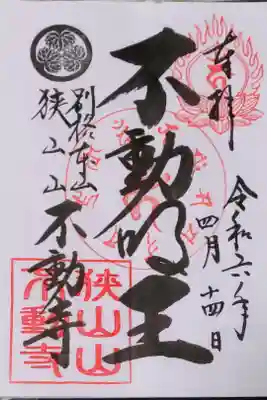 奉拝
令和六年
四月十四日
不動明王
別格本山
狭山山
不動寺
狭山山
不動寺